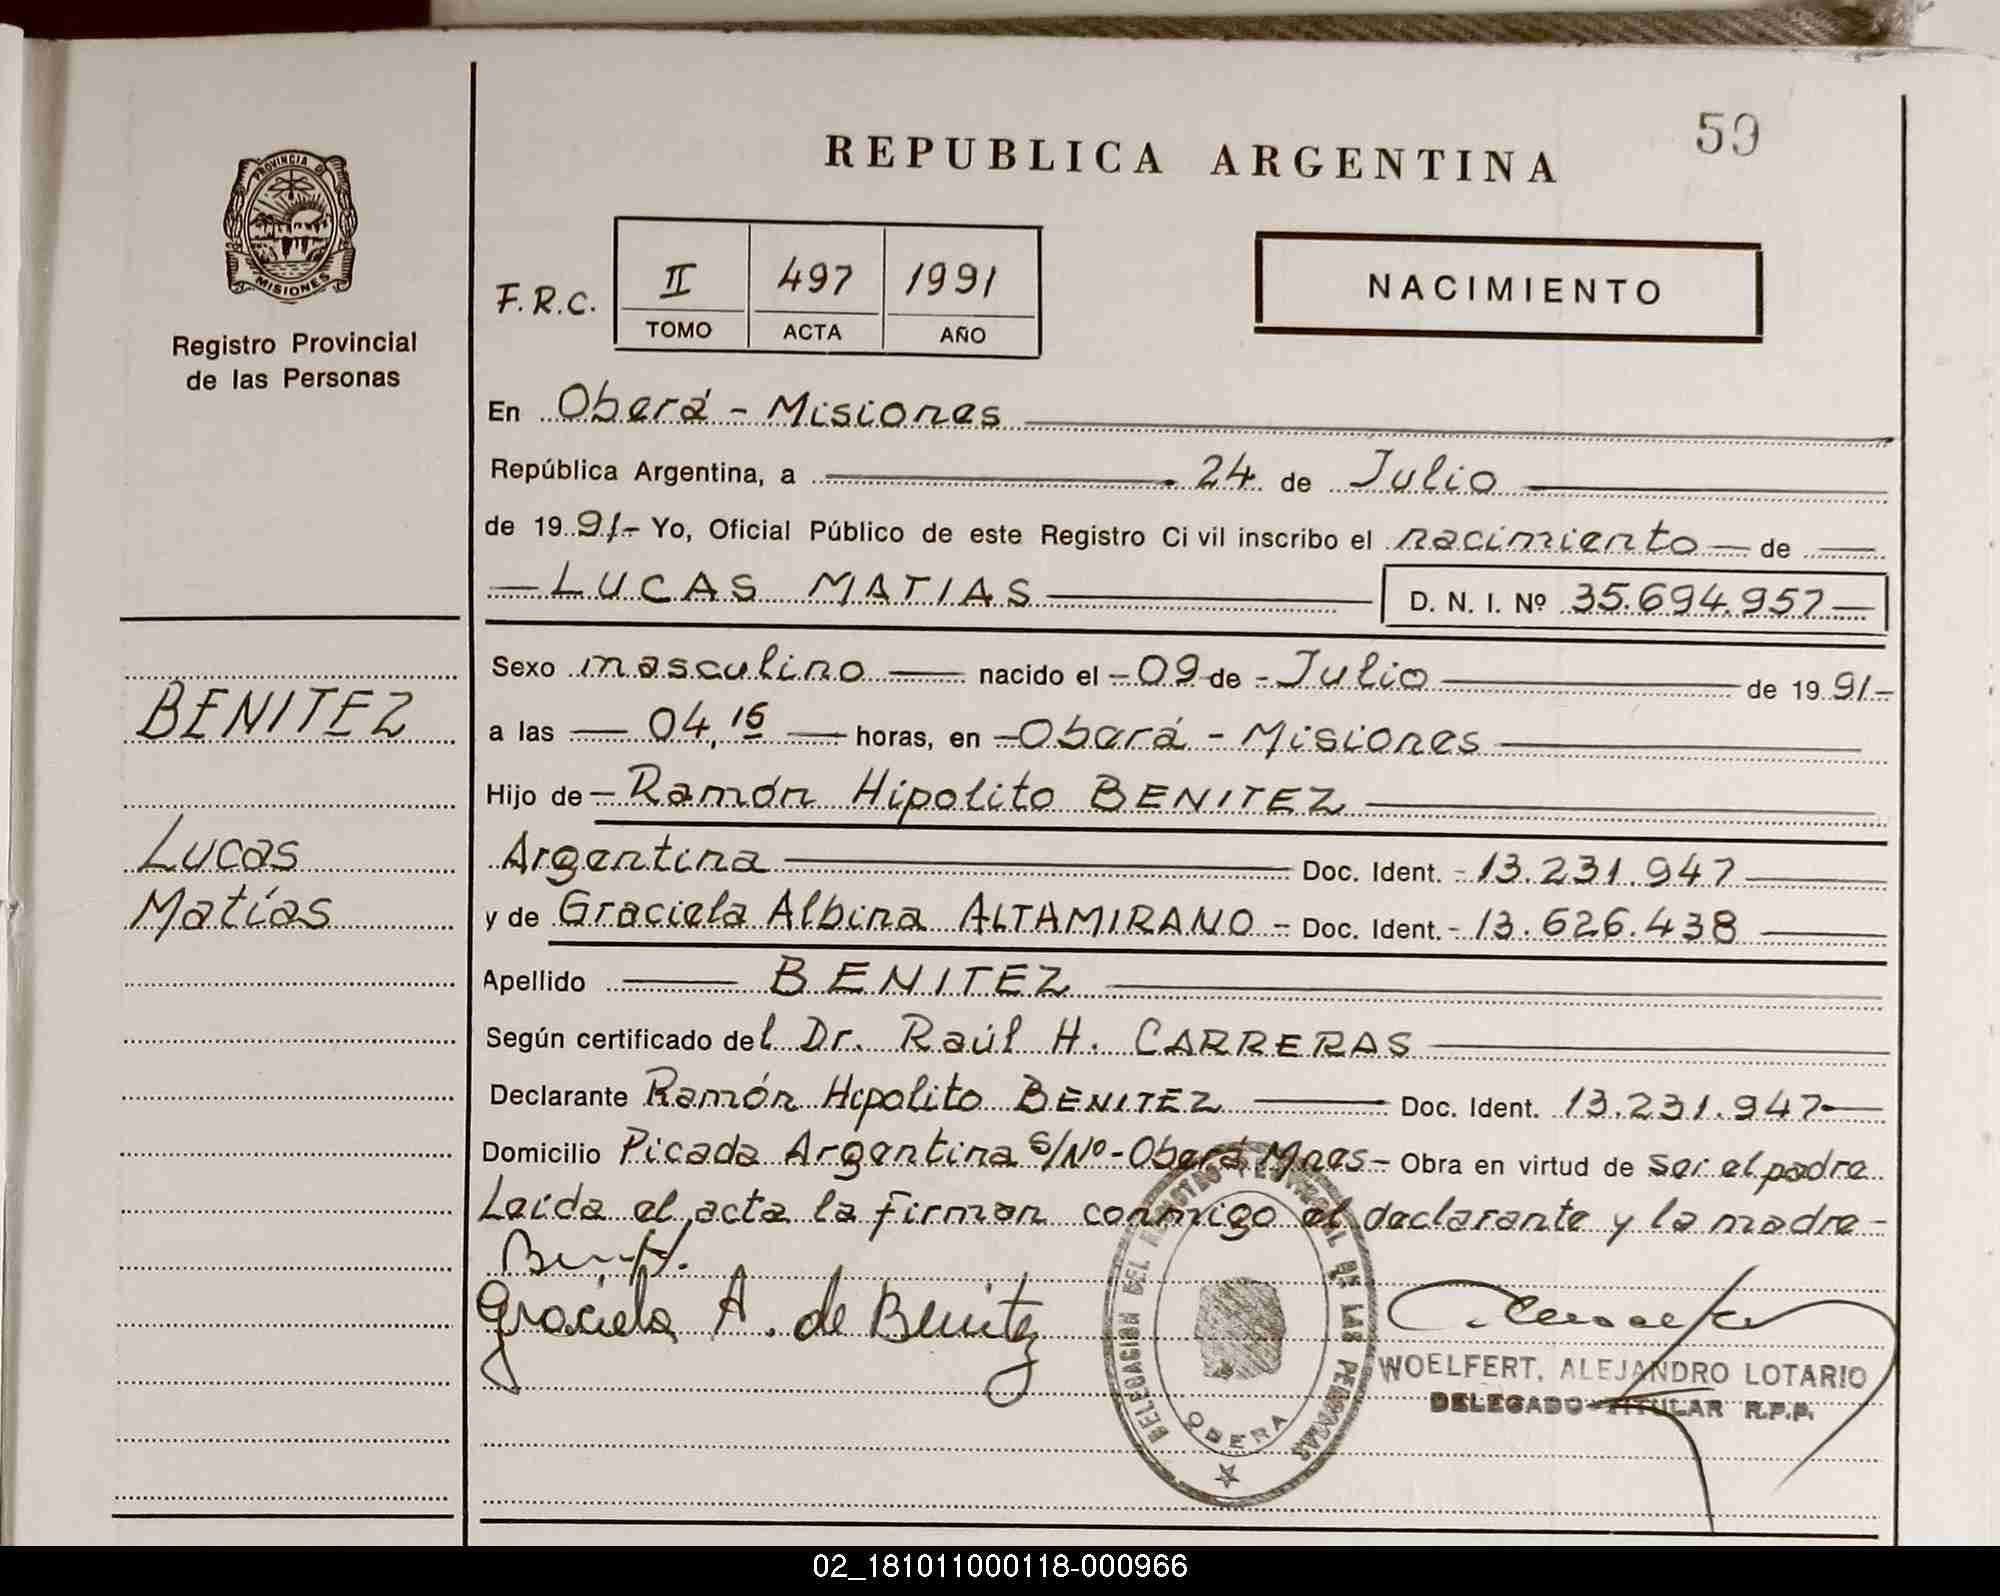 59
REPUBLICA ARGENTINA
PROVINCIA DE
MISIONES
Registro Provincial
de las Personas
F.R.C.
II 497 1991
TOMO ACTA AÑO
NACIMIENTO
En Oberá - Misiones
República Argentina, a 24 de Julio
de 19 91.- Yo, Oficial Público de este Registro Civil inscribo el nacimiento de
LUCAS MATIAS D. N. I. Nº 35.694.957
Sexo masculino nacido el 09 de Julio de 19 91.-
a las 04,15 horas, en Oberá - Misiones
Hijo de Ramón Hipolito BENITEZ
Argentina Doc. Ident. 13.231.947
y de Graciela Albina ALTAMIRANO - Doc. Ident. 13.626.438
Apellido BENITEZ
Según certificado del Dr. Raúl H. CARRERAS
Declarante Ramón Hipolito BENITEZ Doc. Ident. 13.231.947
Domicilio Picada Argentina S/Nº - Oberá Mnes - Obra en virtud de ser el padre
Leída el acta la firman conmigo el declarante y la madre -
Graciela A. de Benitez
BENITEZ
Lucas
Matías
DELEGACION DEL REGISTRO PROVINCIAL DE LAS PERSONAS
OBERA
WOELFERT, ALEJANDRO LOTARIO
DELEGADO TITULAR R.P.P.
02_181011000118-000966